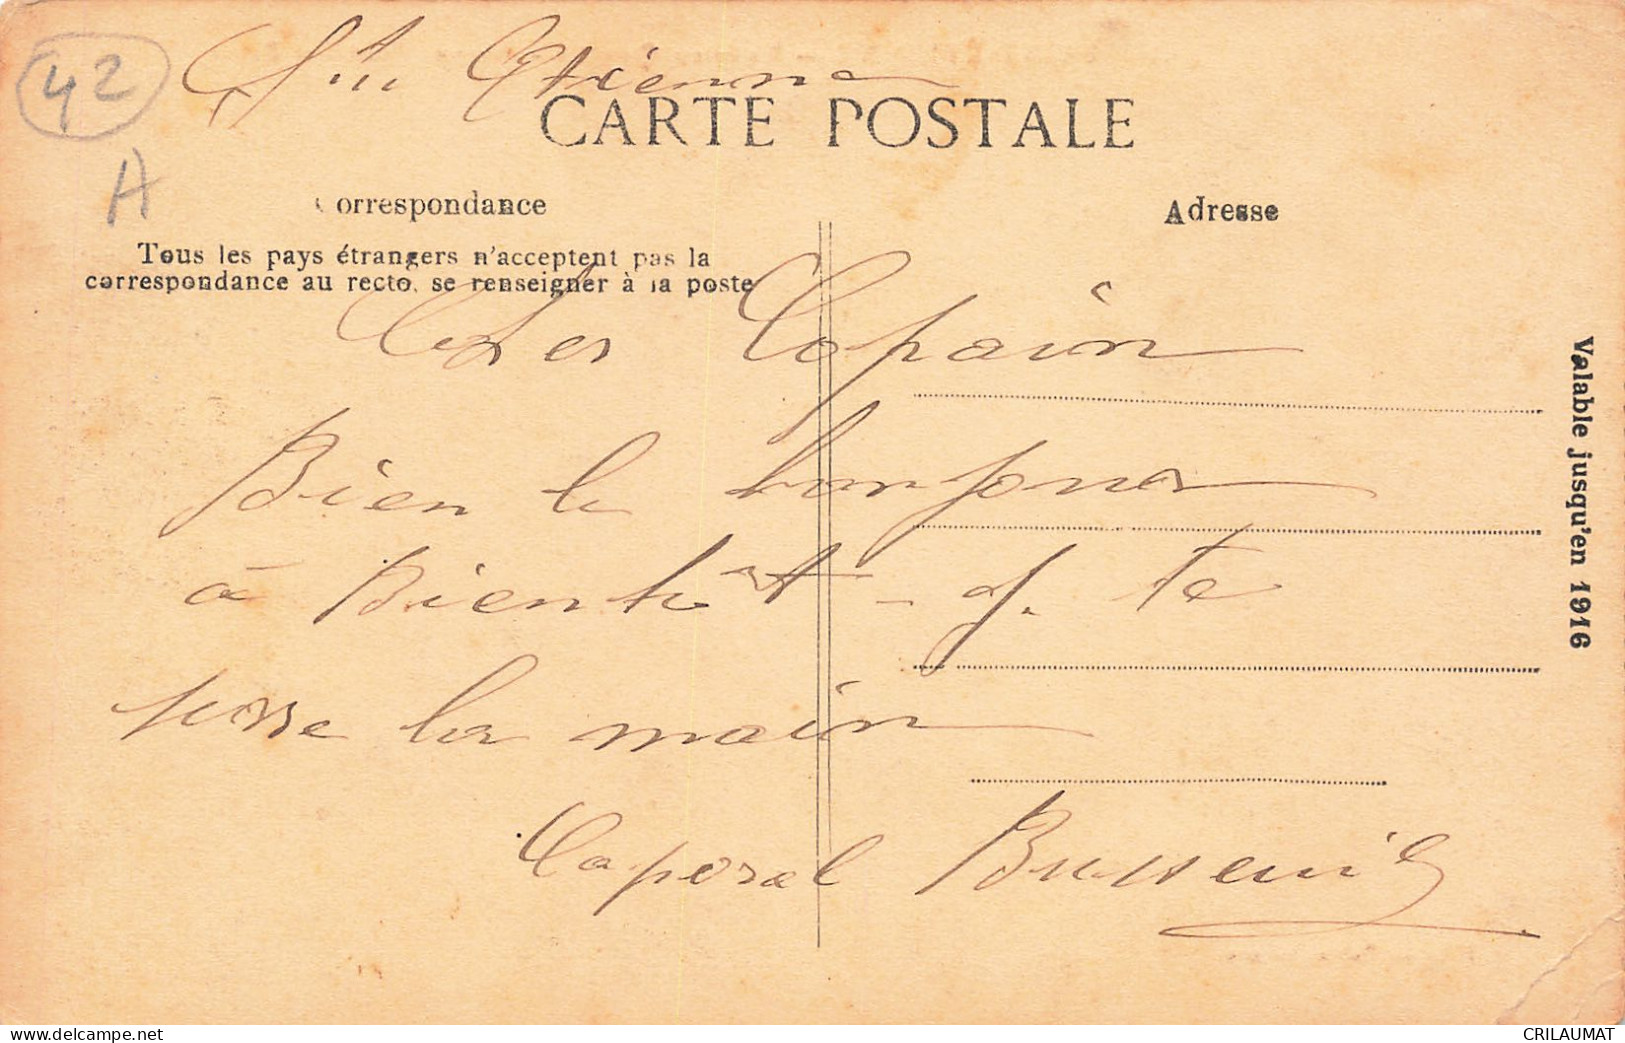 42
A
St Etienne
CARTE POSTALE
Correspondance
Adresse
Tous les pays étrangers n'acceptent pas la
correspondance au recto, se renseigner à la poste
Cher Copain
Bien le bonjour
à Bientôt - j. te
serre la main
Caporal
Valable jusqu'en 1916
www.delcampe.net
CRILAUMAT